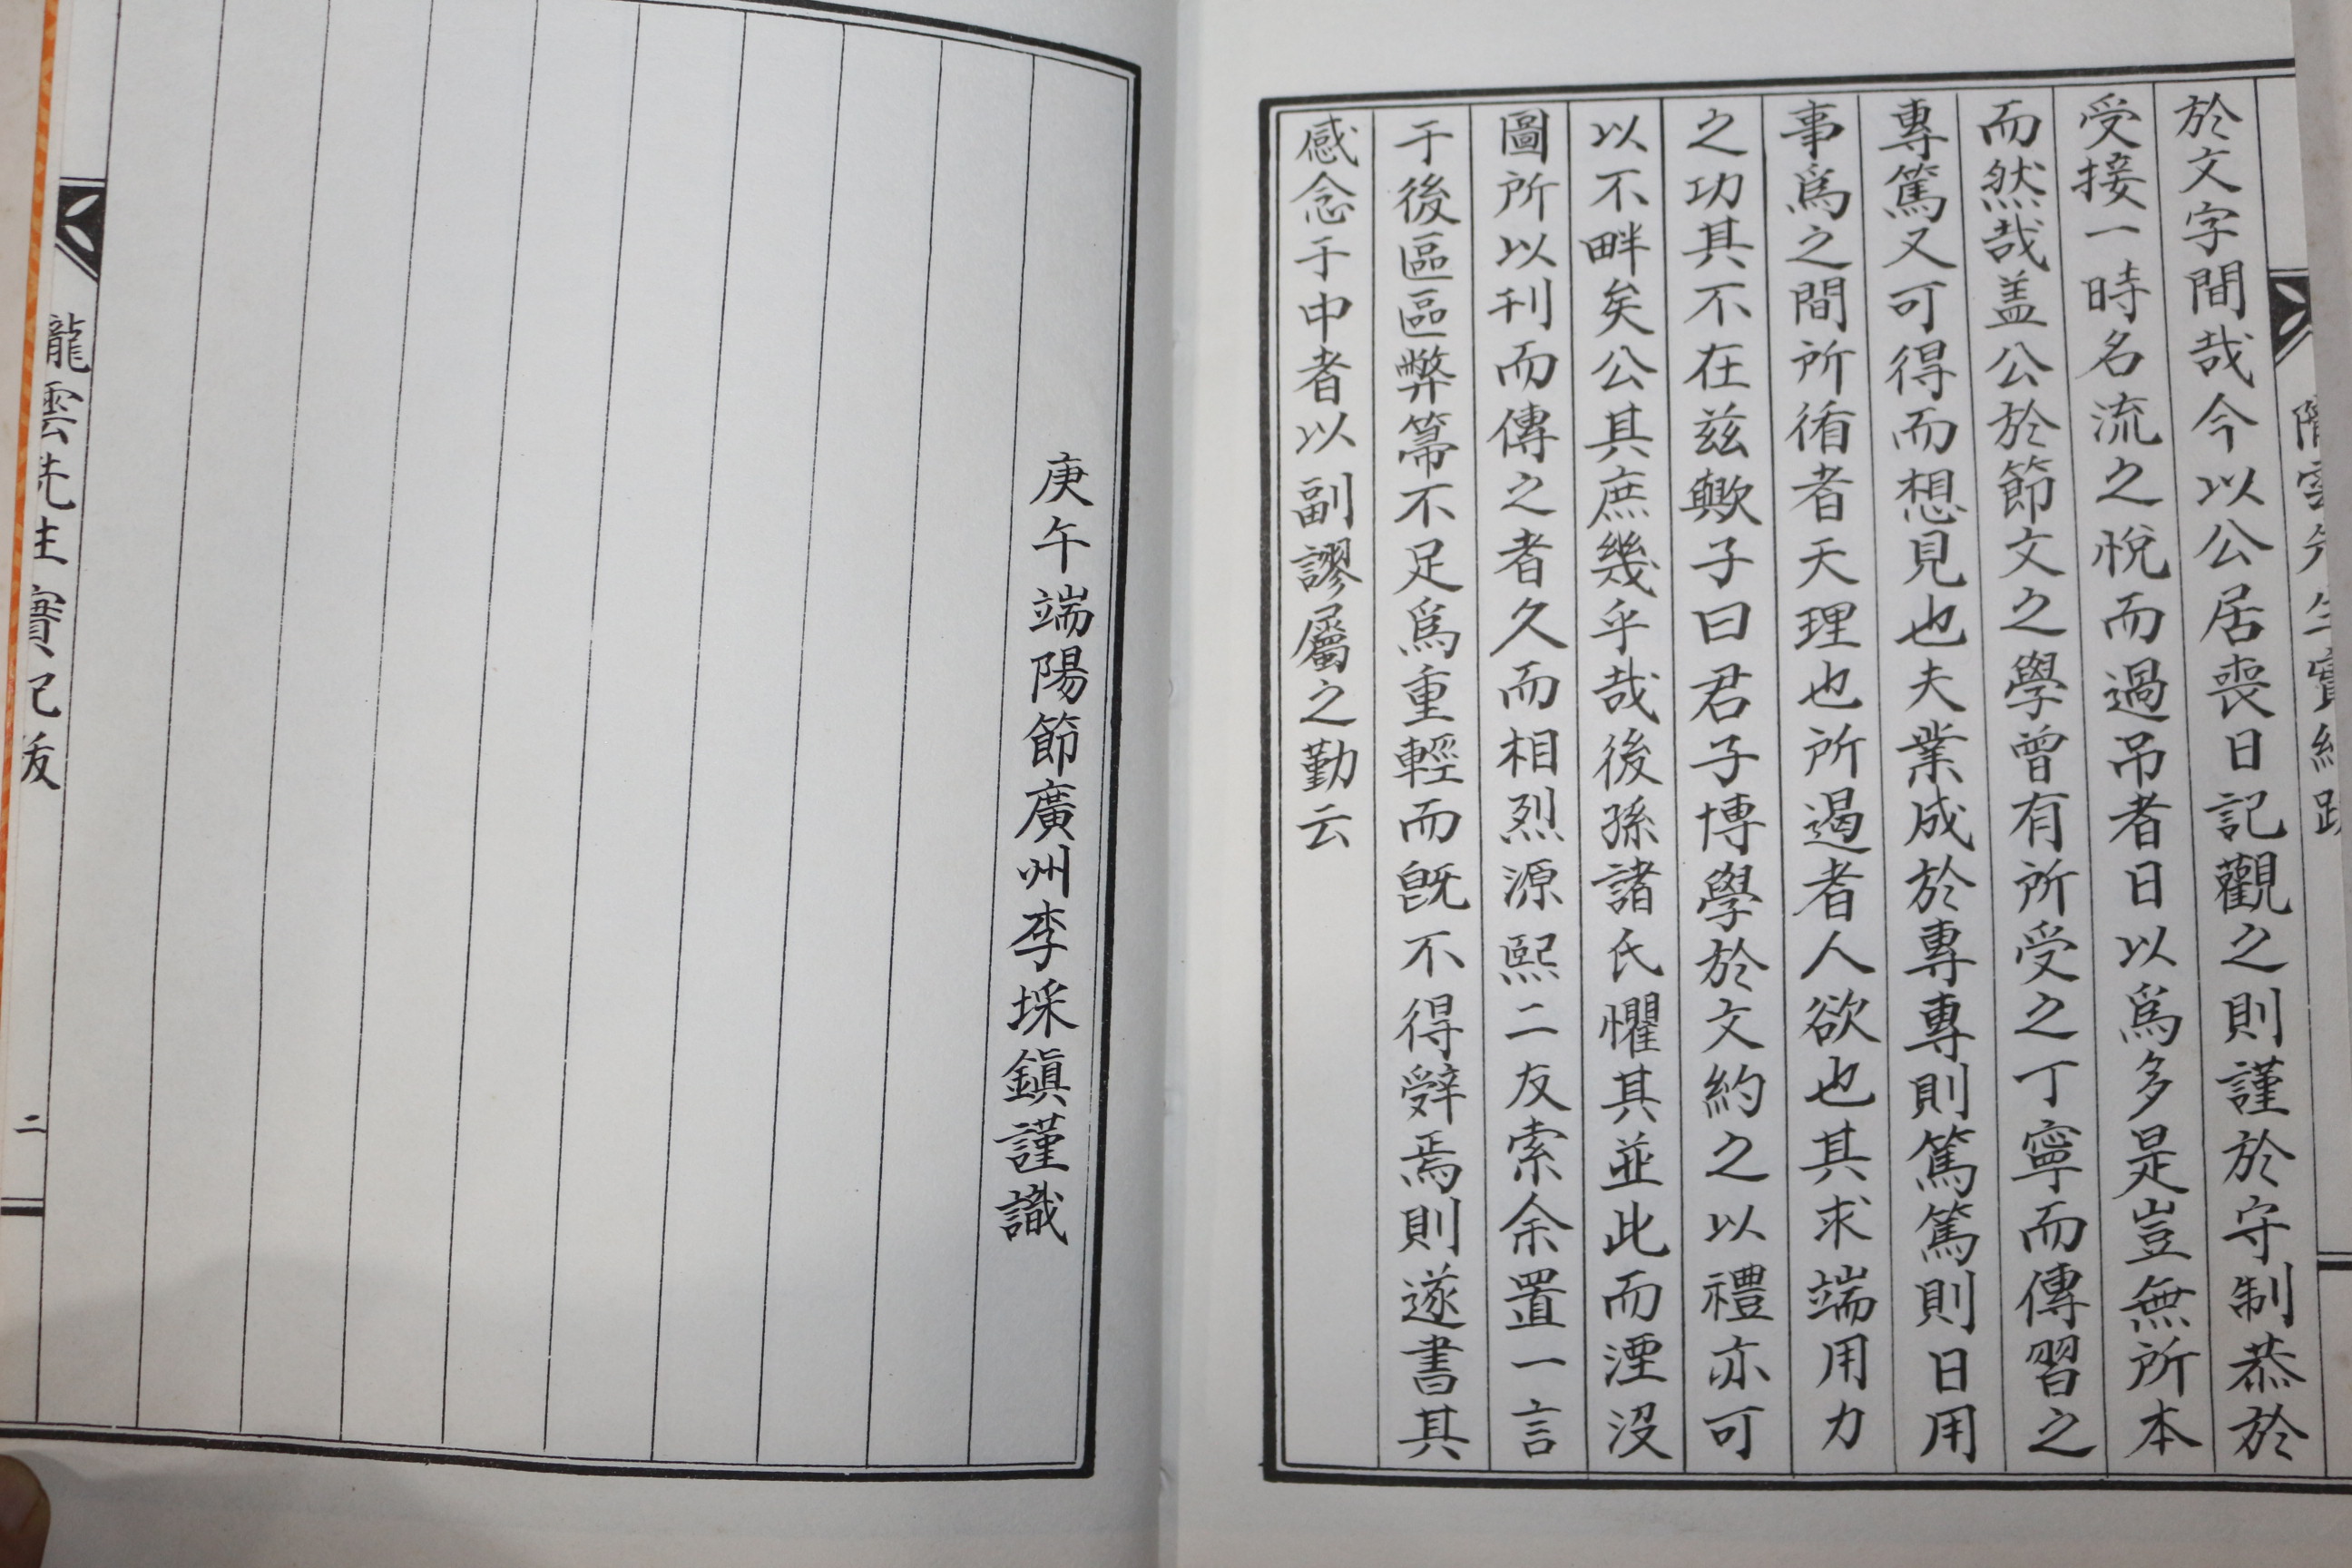 於文字間哉今以公居喪日記觀之則謹於守制恭於
受接一時名流之悅而過吊者日以爲多是豈無所本
而然哉盖公於節文之學曾有所受之丁寧而傳習之
專篤又可得而想見也夫業成於專專則篤篤則日用
事爲之間所循者天理也所遏者人欲也其求端用力
之功其不在玆歟子曰君子博學於文約之以禮亦可
以不畔矣公其庶幾乎哉後孫諸氏懼其並此而湮沒
圖所以刊而傳之者久而相烈源熙二友索余置一言
于後區區弊箒不足爲重輕而旣不得辭焉則遂書其
感念于中者以副謬屬之勤云
庚午端陽節廣州李埰鎭謹識
二